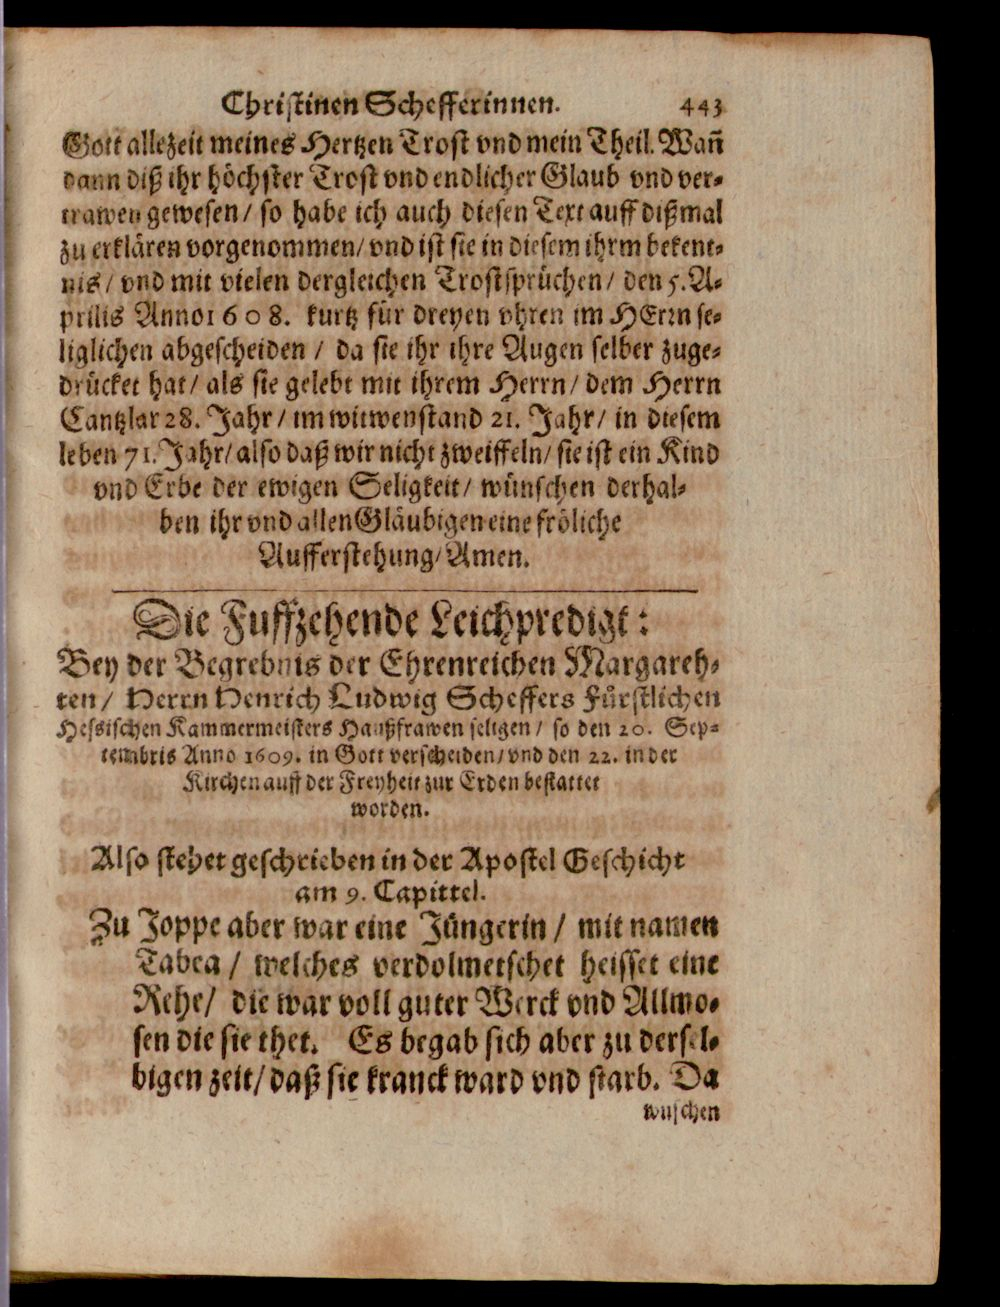 Christinen Schefferinnen. 443
Gott allezeit meines Hertzen Trost vnd mein Theil. Wañ
dann diß ihr höchster Trost vnd endlicher Glaub vnd ver-
trawen gewesen/ so habe ich auch diesen Text auff dißmal
zu erklären vorgenommen/ vnd ist sie in diesem ihrm bekent-
nis/ vnd mit vielen dergleichen Trostsprüchen/ den 5. A-
prilis Anno 1608. kurtz für dreyen vhren im HErrn se-
liglichen abgescheiden / da sie ihr ihre Augen selber zuge-
drücket hat/ als sie gelebt mit ihrem Herrn/ dem Herrn
Cantzlar 28. Jahr/ im witwenstand 21. Jahr/ in diesem
leben 71. Jahr/ also daß wir nicht zweiffeln/ sie ist ein Kind
vnd Erbe der ewigen Seligkeit/ wünschen derhal-
ben ihr vnd allen Gläubigen eine fröliche
Aufferstehung/ Amen.
Die Fuffzehende Leichpredigt:
Bey der Begrebnis der Ehrenreichen Margareh-
ten/ Herrn Henrich Ludwig Scheffers Fürstlichen
Hessischen Kammermeisters Haußfrawen seligen/ so den 20. Sep-
tembris Anno 1609. in Gott verscheiden/ vnd den 22. in der
Kirchen auff der Freyheit zur Erden bestattet
worden.
Also stehet geschrieben in der Apostel Geschicht
am 9. Capittel.
Zu Joppe aber war eine Jüngerin/ mit namen
Tabea/ welches verdolmetschet heisset eine
Rehe/ die war voll guter Werck vnd Allmo-
sen die sie thet. Es begab sich aber zu dersel-
bigen zeit/ daß sie kranck ward vnd starb. Da
wuschen